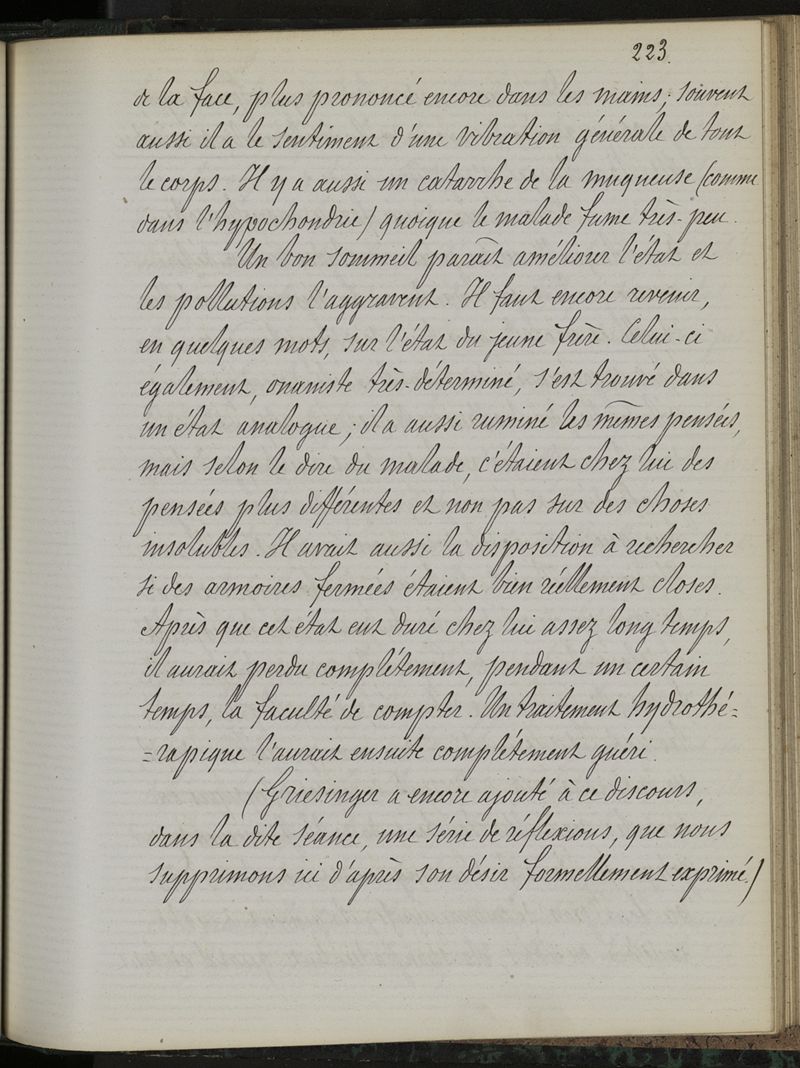 223.
de la face, plus prononcé encore dans les mains; souvent
aussi il a le sentiment d'une vibration générale de tout
le corps. Il y a aussi un catarrhe de la muqueuse (comme
dans l'hypochondrie) quoique le malade fume très-peu.
Un bon sommeil paraît améliorer l'état et
les pollutions l'aggravent. Il faut encore revenir,
en quelques mots, sur l'état du jeune frère. Celui-ci
également, onaniste très-déterminé, s'est trouvé dans
un état analogue; il a aussi ruminé les mêmes pensées,
mais selon le dire du malade, c'étaient chez lui des
pensées plus différentes et non pas sur des choses
insolubles. Il avait aussi la disposition à rechercher
si des armoires fermées étaient bien réellement closes.
Après que cet état eut duré chez lui assez long temps,
il aurait perdu complétement, pendant un certain
temps, la faculté de compter. Un traitement hydrothé=
=rapique l'aurait ensuite complétement guéri.
(Griesinger a encore ajouté à ce discours,
dans la dite séance, une série de réflexions, que nous
supprimons ici d'après son désir formellement exprimé.)